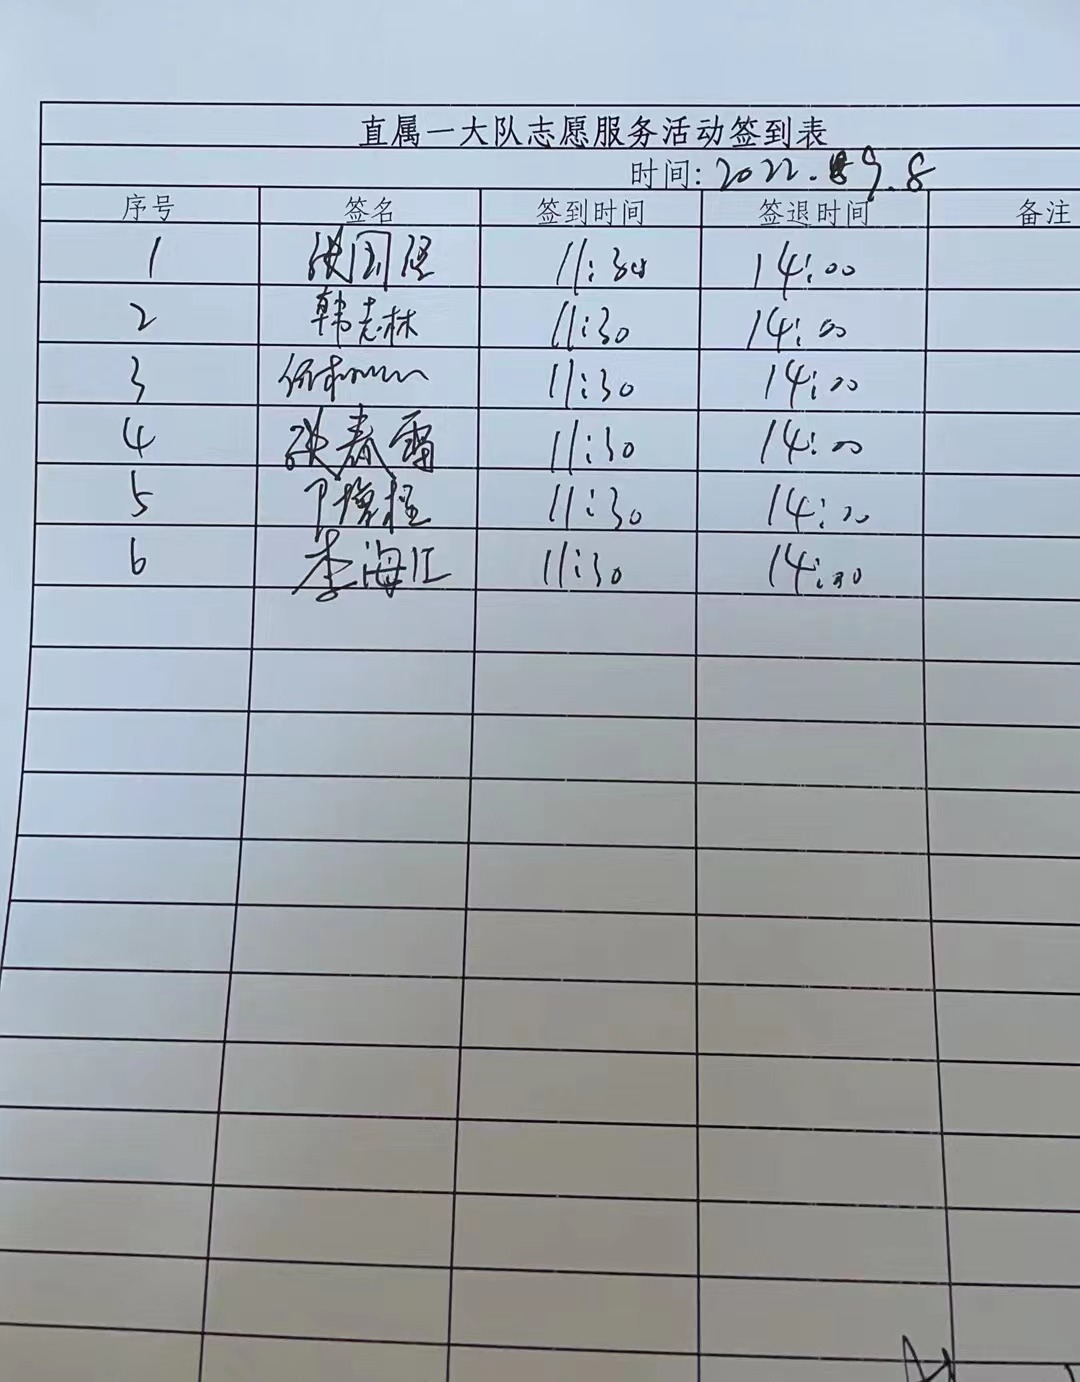 直属一大队志愿服务活动签到表
时间: 2022.9.8
序号 签名 签到时间 签退时间 备注
1 张国 11:30 14:00
2 韩志林 11:30 14:00
3 11:30 14:00
4 张春雷 11:30 14:00
5 11:30 14:00
6 李海江 11:30 14:00